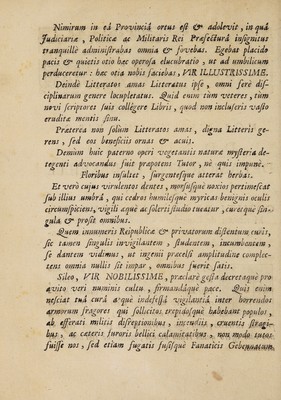 Nimirum in eâ Provinciâ ortus est & adolevit, in quâ
Judiciariæ, Politicæ ac Militaris Rei Præfecturâ insignitus
tranquillè administrabas omnia & fovebas. Egebat placido
pacis & quietis otio hæc operosa elucubratio, ut ad umbilicum
perduceretur: hæc otia nobis faciebas, VIR ILLUSTRISSIME.
Deindè Litteratos amas Litteratus ipse, omni ferè disciplinarum
genere locupletatus. Quid enim tùm veteres, tùm
novi scriptores suis collégere Libris, quod non incluseris vasto
eruditæ mentis sinu.
Præterea non solùm Litteratos amas, digna Litteris gerens,
sed eos beneficiis ornas & acuis.
Demùm huic paterno operi vegetantis naturæ mysteria detegenti
advocandus fuit præpotens Tutor, nè quis impunè.
Floribus insultet, surgentesque atterat herbas.
Et verò cujus virulentos dentes, morsusque noxios pertimescat
sub illius umbrâ, qui cedros humilesque myricas benignis oculis
circumspiciens, vigili æquè ac solerti studio tueatur, curetque singula
& præsit omnibus.
Quem innumeris Reipublicæ & privatorum distentum curis,
sic tamen singulis invigilantem, studentem, incumbentem,
se dantem vidimus, ut ingenii præcelsi amplitudine complectens
omnia nulli sit impar, omnibus fuerit satis.
Sileo, VIR NOBILISSIME, præclarè gesta decretaque pro
avito veri numinis cultu, firmandâque pace. Quis enim
nesciat tuâ curâ æquè indefessâ vigilantiâ inter horrendos
armorum fragores qui sollicitos trepidosque habebant populos,
ab efferati militis direptionibus, incendiis, cruentis stragibus,
ac cæteris furoris bellici calamitatibus, non modo tutos
fuisse nos, sed etiam fugatis fusisque Fanaticis Gebennarum